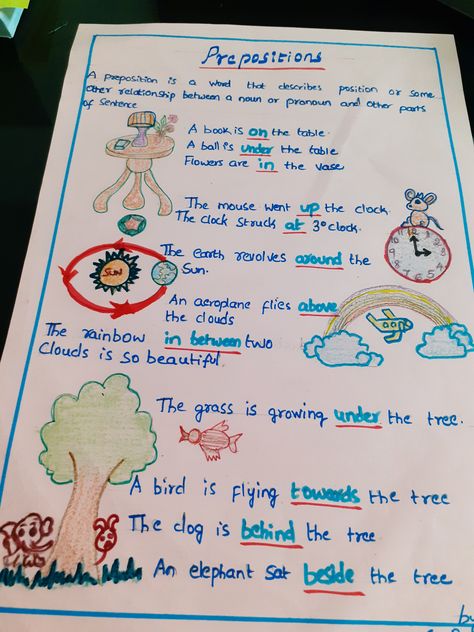 Prepositions
A preposition is a word that describes position or some
other relationship between a noun or pronoun and other parts
of sentence
A book is on the table.
A ball is under the table
Flowers are in the vase
The mouse went up the clock.
The clock struck at 3o clock.
The earth revolves around the
Sun.
SUN
An aeroplane flies above
the clouds
The rainbow in between two
clouds is so beautiful.
The grass is growing under the tree.
A bird is flying towards the tree
The clog is behind the tree
An elephant sat beside the tree
by